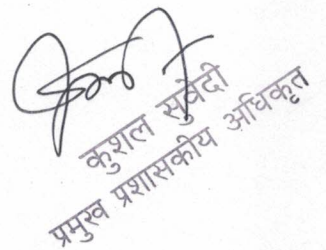 कुशल सुवेदी
प्रमुख प्रशासकीय अधिकृत